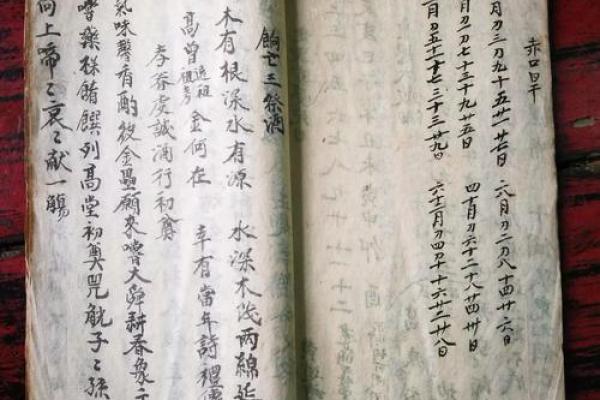 赤口
月刀三刀九十五廿一廿七日 六月刀二刀八十四廿六日
月刀二刀七十三十九廿五日 四十月刀六十二十八廿四卅日
月刀五十一十七廿三廿九日 六十二月刀四刀十十六廿二廿八日
餉亡三祭酒
木有根深水有源 水深木茂两綿延
高曾遠祖 今何在 幸有當年詩禮傳
孝眷虔誠酒行初奠
氣味馨香酌彼金罍願來嚐大舜耕春象
嚐藥樣饈饌列高堂初奠兕觥子々孫
向上啼々哀々献一觴